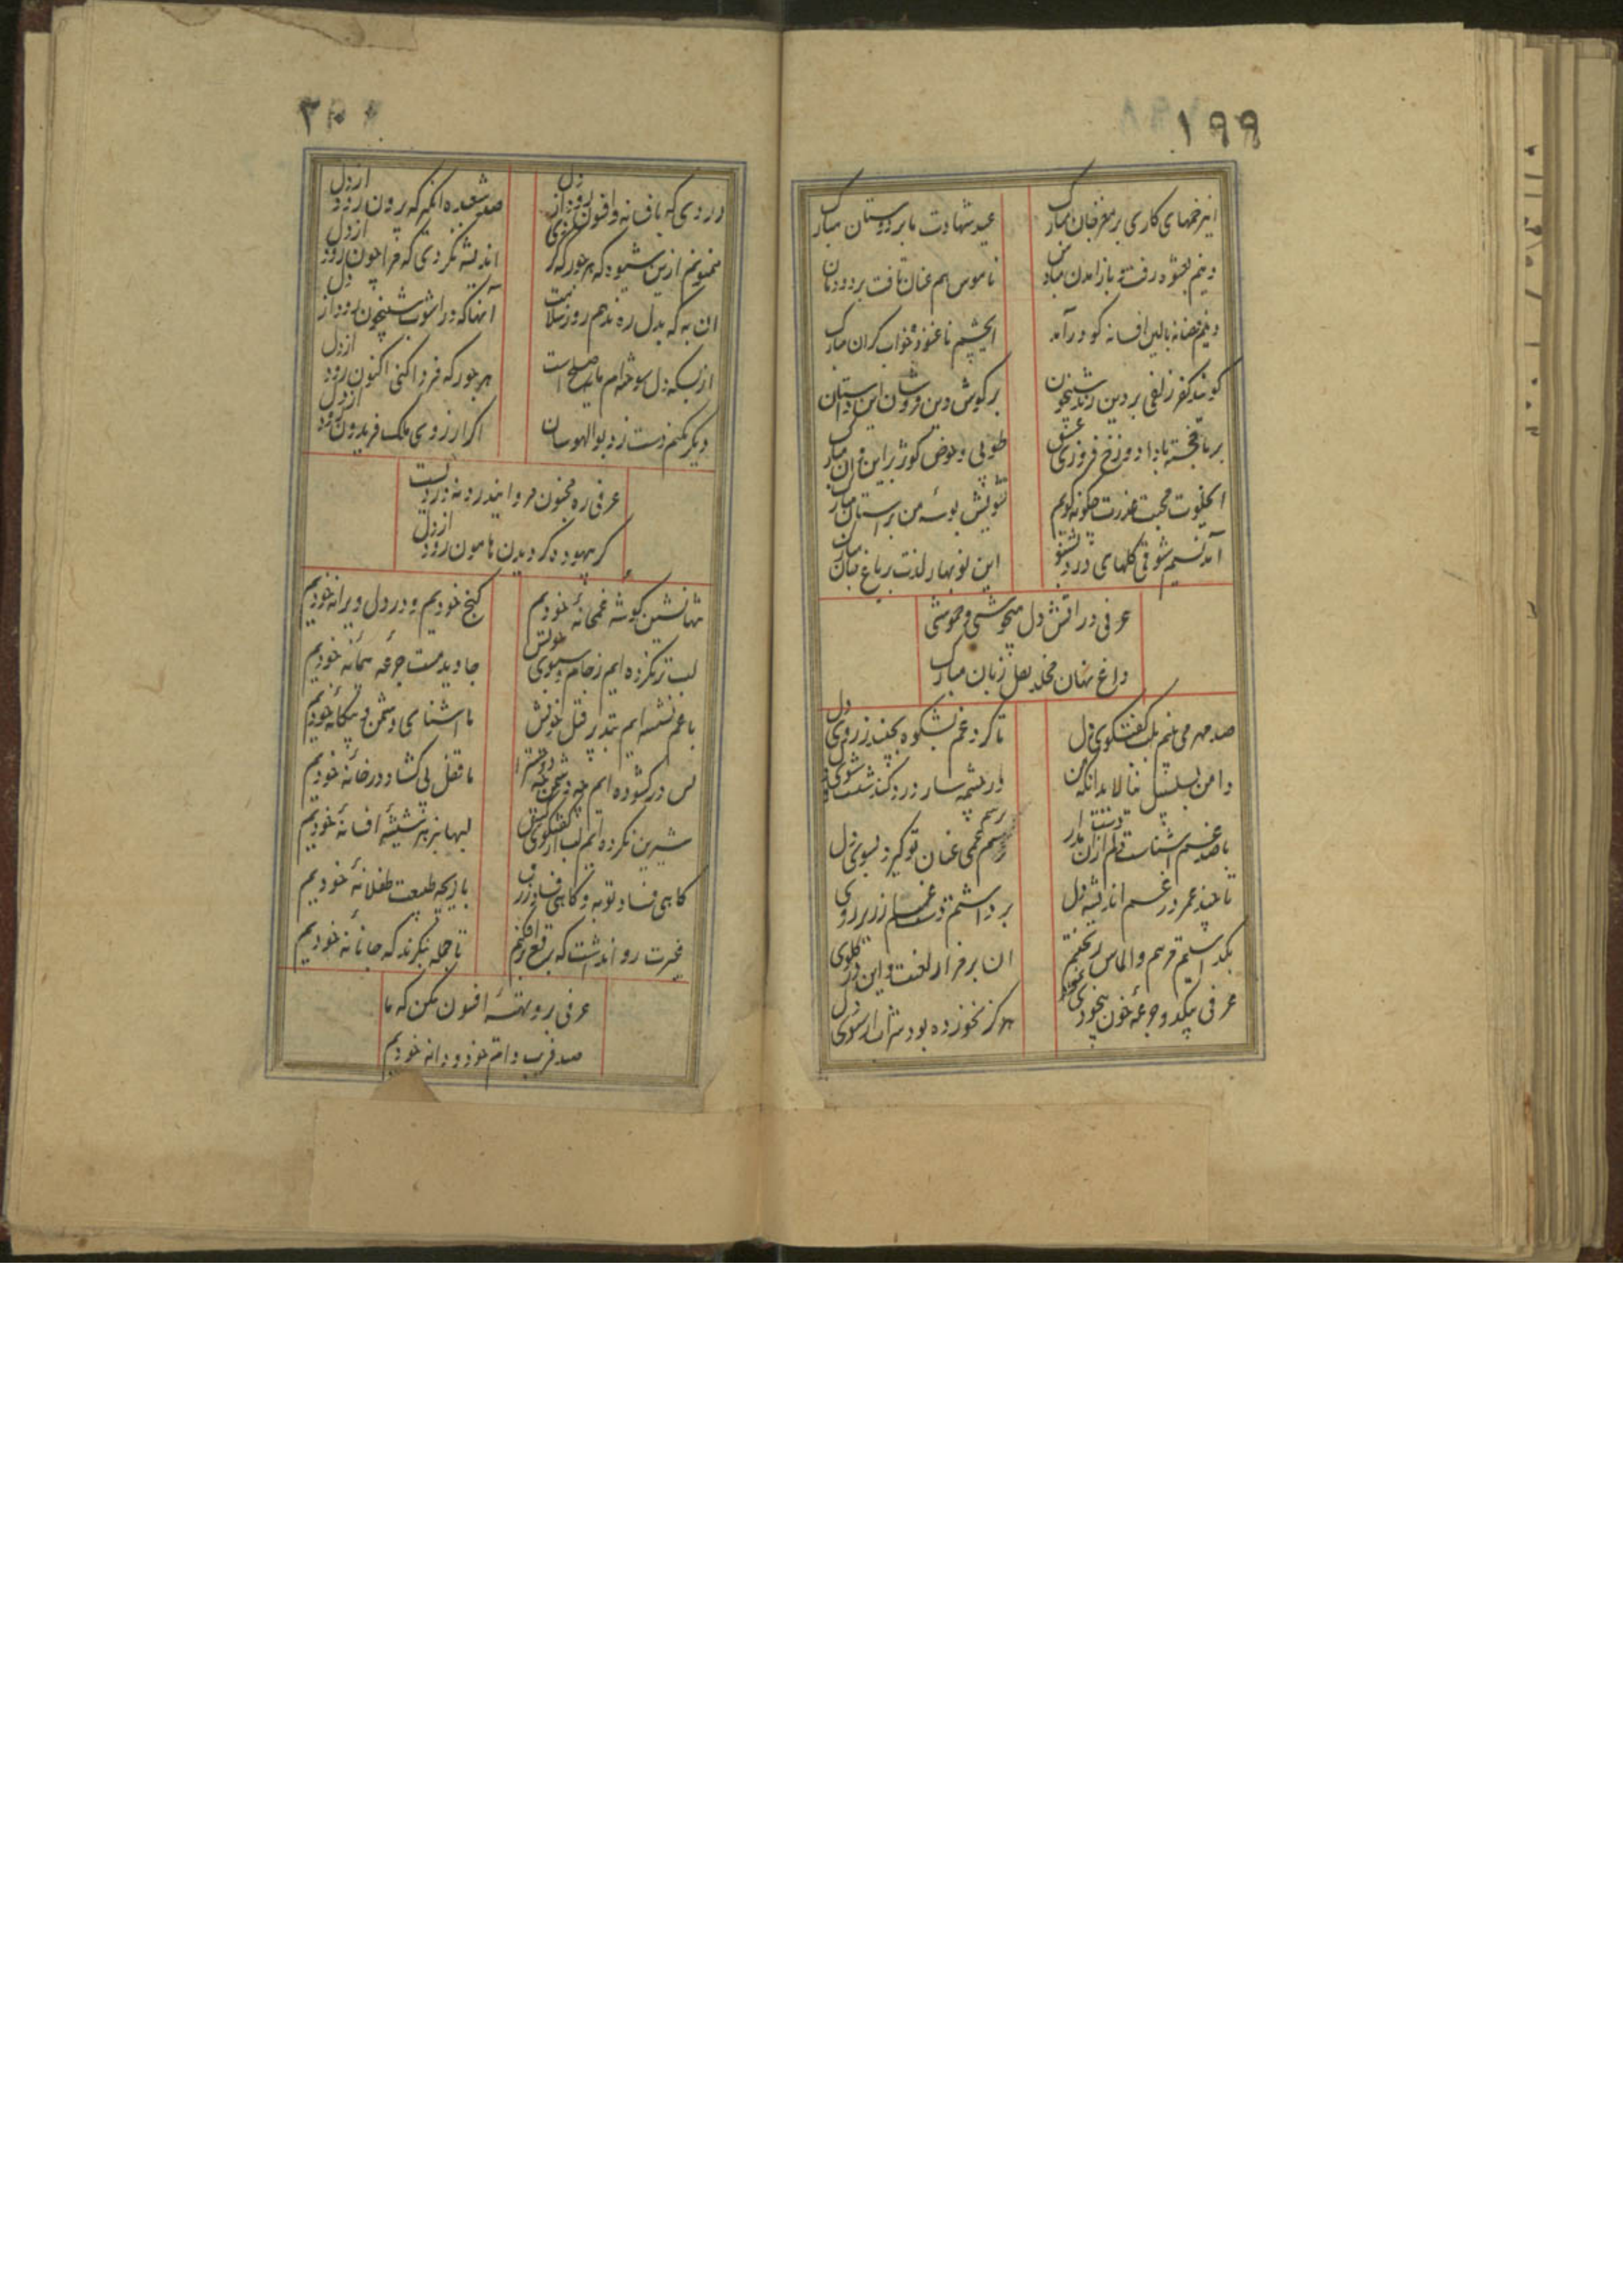 ۱۹۹
این زخمهای کاری بر مغز جان مبارک
عید شهادت ما بر دوستان مبارک
دینم بعشوه رفت و باز آمدن مبادش
ناموس هم عنان تافت بر دودمان
دینم فسانه بالین افسانه کو درآمد
ای چشم ناغنوده خواب گران مبارک
گویند کفر زلفی بر دین زند شبیخون
بر گوش دین فروشان این داستان
بر ما خجسته بادا دوزخ فروزی عشق
طوبی و حوض کوثر بر این و آن مبارک
ای خلوت محبت عذرت چگونه گویم
تشویش بوسه من بر آستان مبارک
آمد نسیم شوقی گلهای درد بشکفت
این نوبهار لذت بر باغ جان مبارک
عرفی در آتش دل میجوشی و خموشی
داغ نهان مخلد بر لعل زبان مبارک
صد مهر می نهم بلب گفتگوی دل
تا گرد غم بشکوه نخیزد ز روی دل
دامن بسلسبیل میالا بدانکه من
در چشمه سار درد کنم شست شوی
با صد غم آشناست دلم زان
رسم غمی عنان تو گیرد بسوی دل
تا چند عمر در غم اندیشه دل
برداشتم دست غم از زیر روی
یکدم نسیم مرهم و الماس ریختم
آن بر مزار لعنت و این در گلوی
عرفی بیکدو جرعه خون بیخودی نمود
هرگز نخورده بود شراب از سبوی دل
۲۰۰
دردی که بافسانه و افسون رود از دل
صد شعبده انگیز که بیرون رود از دل
ممنونم ازین شیوه که هر جور که کردی
اندیشه نکردی که مرا چون رود از دل
آن به که بدل ره ندهم روز سلامت
آنها که در آشوب شبیخون رود از دل
از بسکه دل سوخته ام مایل صلح است
هر جور که فردا کنی اکنون رود از دل
دیگر نکنم دست زد بوالهوسان
اگر آرزوی ملک فریدون رود
عرفی ره مجنون مرو ایندرد نه دردیست
کز بیهوده گردیدن هامون رود از دل
تنها نشین گوشه غمخانه خودیم
گنج خودیم و در دل ویرانه خودیم
لب تر نکرده ایم ز جام و سبوی خویش
جاوید مست جرعه پیمانه خودیم
با غم نشسته ایم بتدبیر قتل خویش
ما آشنای دشمن و بیگانه خودیم
بس در گشوده ایم چه دشمن چه دوست را
ما قفل بی گشاد در خانه خودیم
شیرین نکرده ایم لب از گفتگوی کس
لبها بزهر شسته افسانه خودیم
گاهی فساد توبه و گاهی فساد رزق
بازیچه طبیعت طفلانه خودیم
غیرت روا نداشت که برقع برافکنیم
تا جمله ننگرند که جانانه خودیم
عرفی برو بهشته افسون مکن که ما
صد فریب دام خود و دانه خودیم